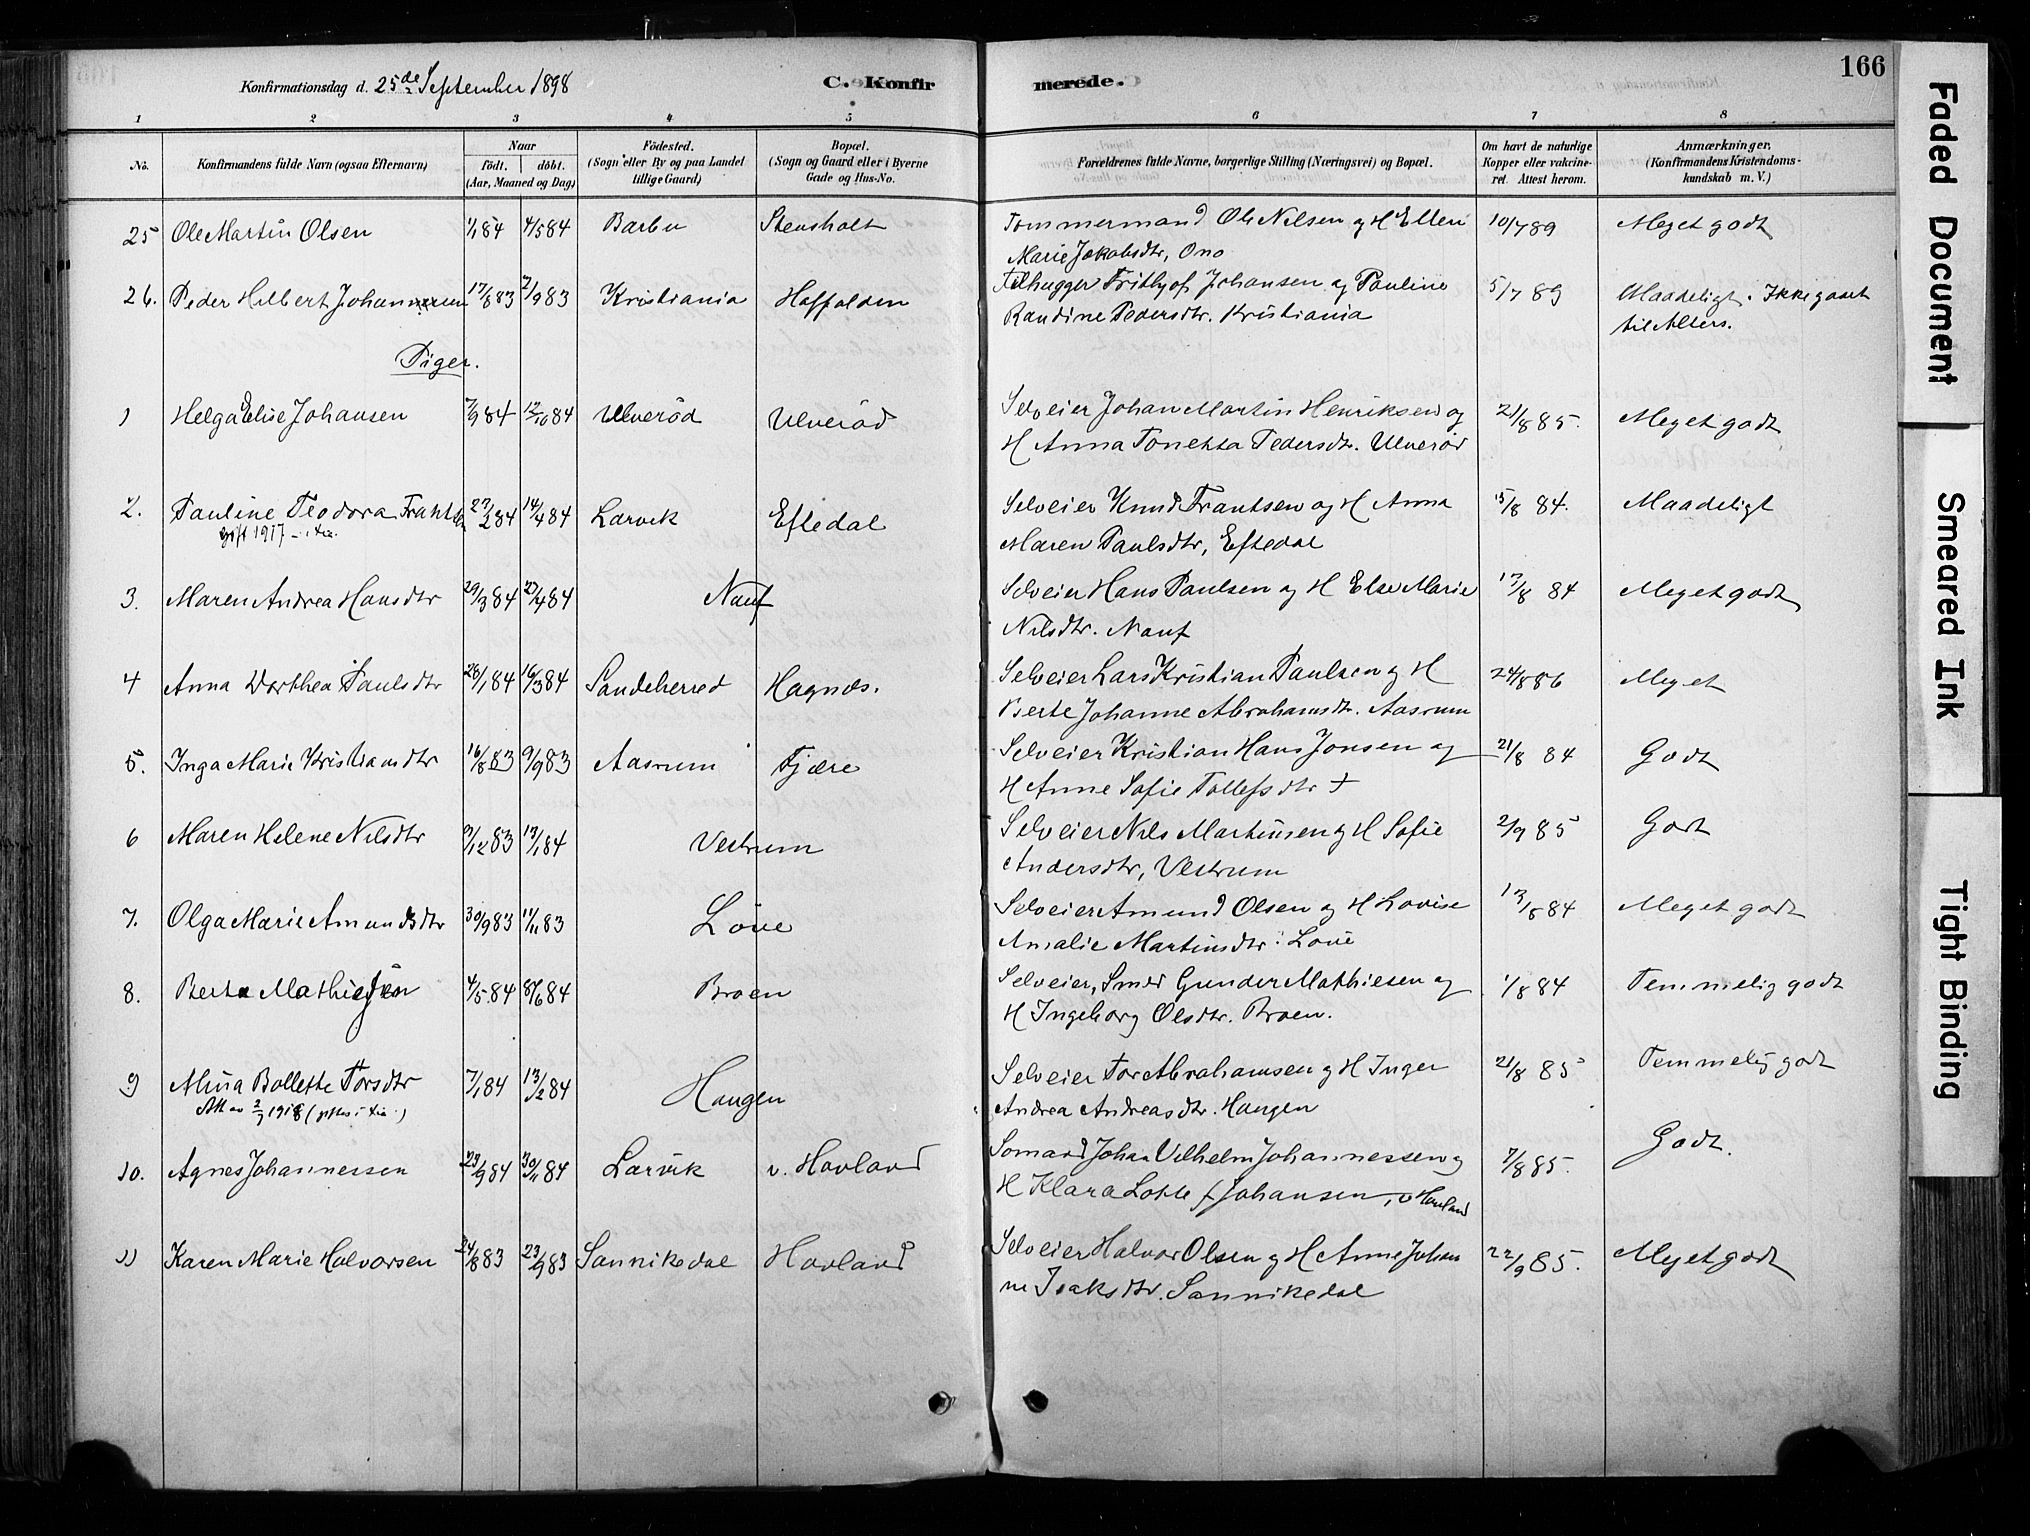 Konfirmationsdag d. 25de September 1898
C. Konfirmerede.
166
1 2 3 4 5 6 7 8
No. Konfirmandens fulde Navn (ogsaa Efternavn) Naar födt. döbt. (Aar, Maaned og Dag) Födested. (Sogn eller By og paa Landet tillige Gaard) Bopæl. (Sogn og Gaard eller i Byerne Gade og Hus-No. Forældrenes fulde Navne, borgerlige Stilling (Næringsvei) og Bopæl. Om havt de naturlige Kopper eller vakcineret. Attest herom. Anmærkninger. (Konfirmandens Kristendomskundskab m. V.)
25 Ole Martin Olsen 1/1 84 4/5 84 Barbu Stensholt Tømmermand Ole Nilsen og H Ellen 10/7 89 Meget godt
Marie Jakobsdtr, Ono
26. Peder Hilbert 17/8 83 2/9 83 Kristiania Haffalden Filhugger Frithjof Johansen og Pauline 5/7 89 Maadeligt. Ikke gaaet
Randine Pedersdtr. Kristiania til Alters.
Piger.
1 Helga Elise Johansen 7/9 84 12/10 84 Ulveröd Ulveröd Selveier Johan Martin Henriksen og 21/8 85. Meget godt
H Anna Tonetta Pedersdtr. Ulveröd
2. Pauline Teodora Frantsen 27/2 84 14/4 84 Larvik Eftedal Selveier Knud Frantsen og H Anna 15/8 84. Maadeligt
gift 1917
Maren Paulsdtr, Eftedal
3. Maren Andrea Hansdtr 29/3 84 27/4 84 Nauf Selveier Hans Paulsen og H Else Marie 17/8 84 Meget godt
Nilsdtr. Nauf
4 Anna Dorthea Paulsdtr 28/1 84 16/3 84 Sandeherred Hagnes. Selveier Lars Kristian Paulsen og H 24/8 86 Meget
Berte Johanne Abrahamsdtr. Aasrum
5. Inga Marie Kristiansdtr 16/8 83 9/9 83 Aasrum Fjære Selveier Kristian Hans Jonsen og 21/8 84 Godt
H Anne Sofie Tollefsdtr +
6 Maren Helene Nilsdtr 3/12 83 13/1 84 Vestrum Selveier Nils Martinsen og H Sofie 2/9 85 Godt
Andersdtr, Vestrum
7. Olga Marie Amundsdtr 30/9 83 11/11 83 Löve Selveier Amund Olsen og H Lovise 13/8 84 Meget godt
Amalie Martinsdtr. Löve
8. Berta Mathiesen 4/5 84 8/6 84 Broen Selveier, Smed Gunder Mathiesen og 1/8 84 Temmelig godt
H Ingeborg Olsdtr. Broen.
9 Alma Bollette Torsdtr 7/1 84 13/2 84 Haugen Selveier Tor Abrahamsen og H Inger 21/8 85 Temmelig godt
Att av 2/7 1918
Andrea Andreasdtr. Haugen
10. Agnes Johannessen 23/9 84 30/11 84 Larvik v. Hovland Sømand Johan Vilhelm Johannessen og 7/8 85. Godt.
H Klara Lotte f Johansen, v Hovland
11 Karen Marie Halvorsen 24/8 83 23/9 83 Sannikedal Hovland Selveier Halvor Olsen og H Anne Johan 22/9 85. Meget godt
ne Isaksdtr. Sannikedal
Faded Document
Smeared Ink
Tight Binding